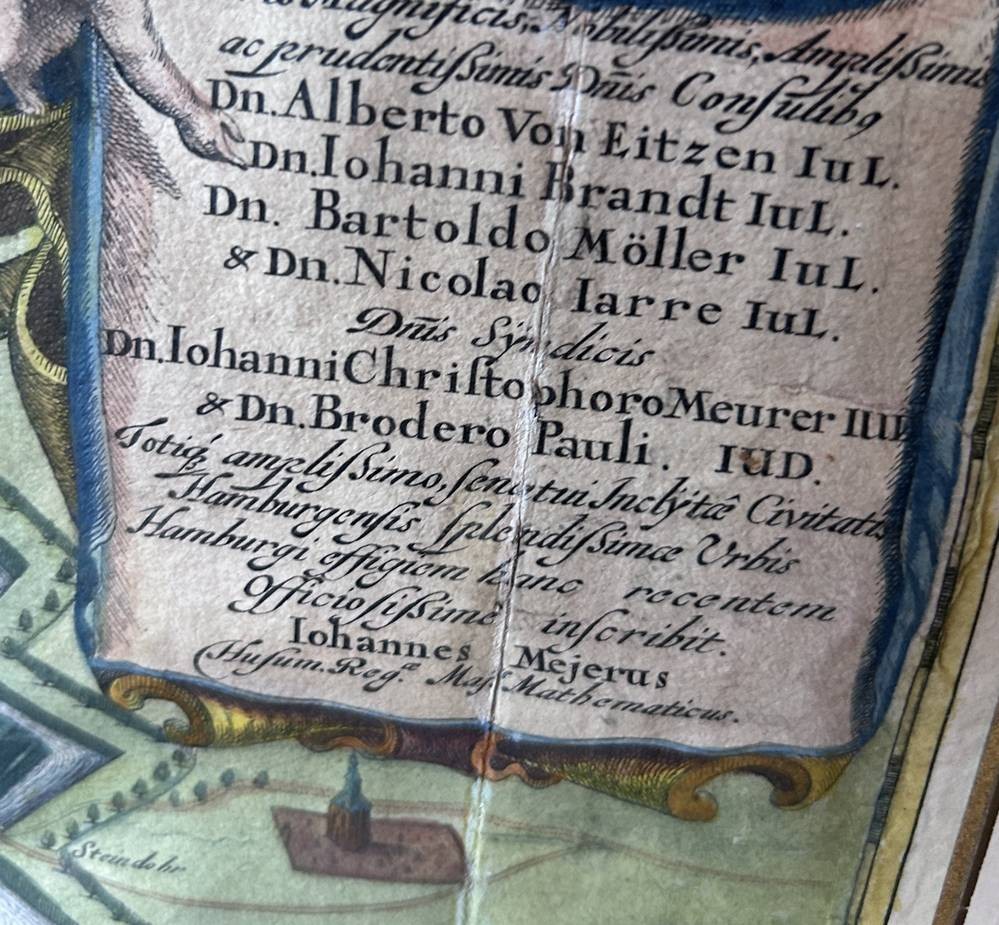 Magnificis, Nobilißimis, Amplißimis
ac prudentißimis Dn̄is Conſulibꝯ
Dn. Alberto Von Eitzen IuL.
Dn. Iohanni Brandt IuL.
Dn. Bartoldo Möller IuL.
& Dn. Nicolao Iarre IuL.
Dn̄is Syndicis
Dn. Iohanni Chriſtophoro Meurer IUD
& Dn. Brodero Pauli. IUD.
Totiq́ꝫ amplißimo, ſenatui Inclÿtæ̂ Civitatis
Hamburgenſis ſplendißimæ Urbis
Hamburgi effigiem hanc recentem
Officioſißimè inſcribit.
Iohannes Mejerus
(Huſum. Reg.æ Maj. Mathematicus.
Steindohr